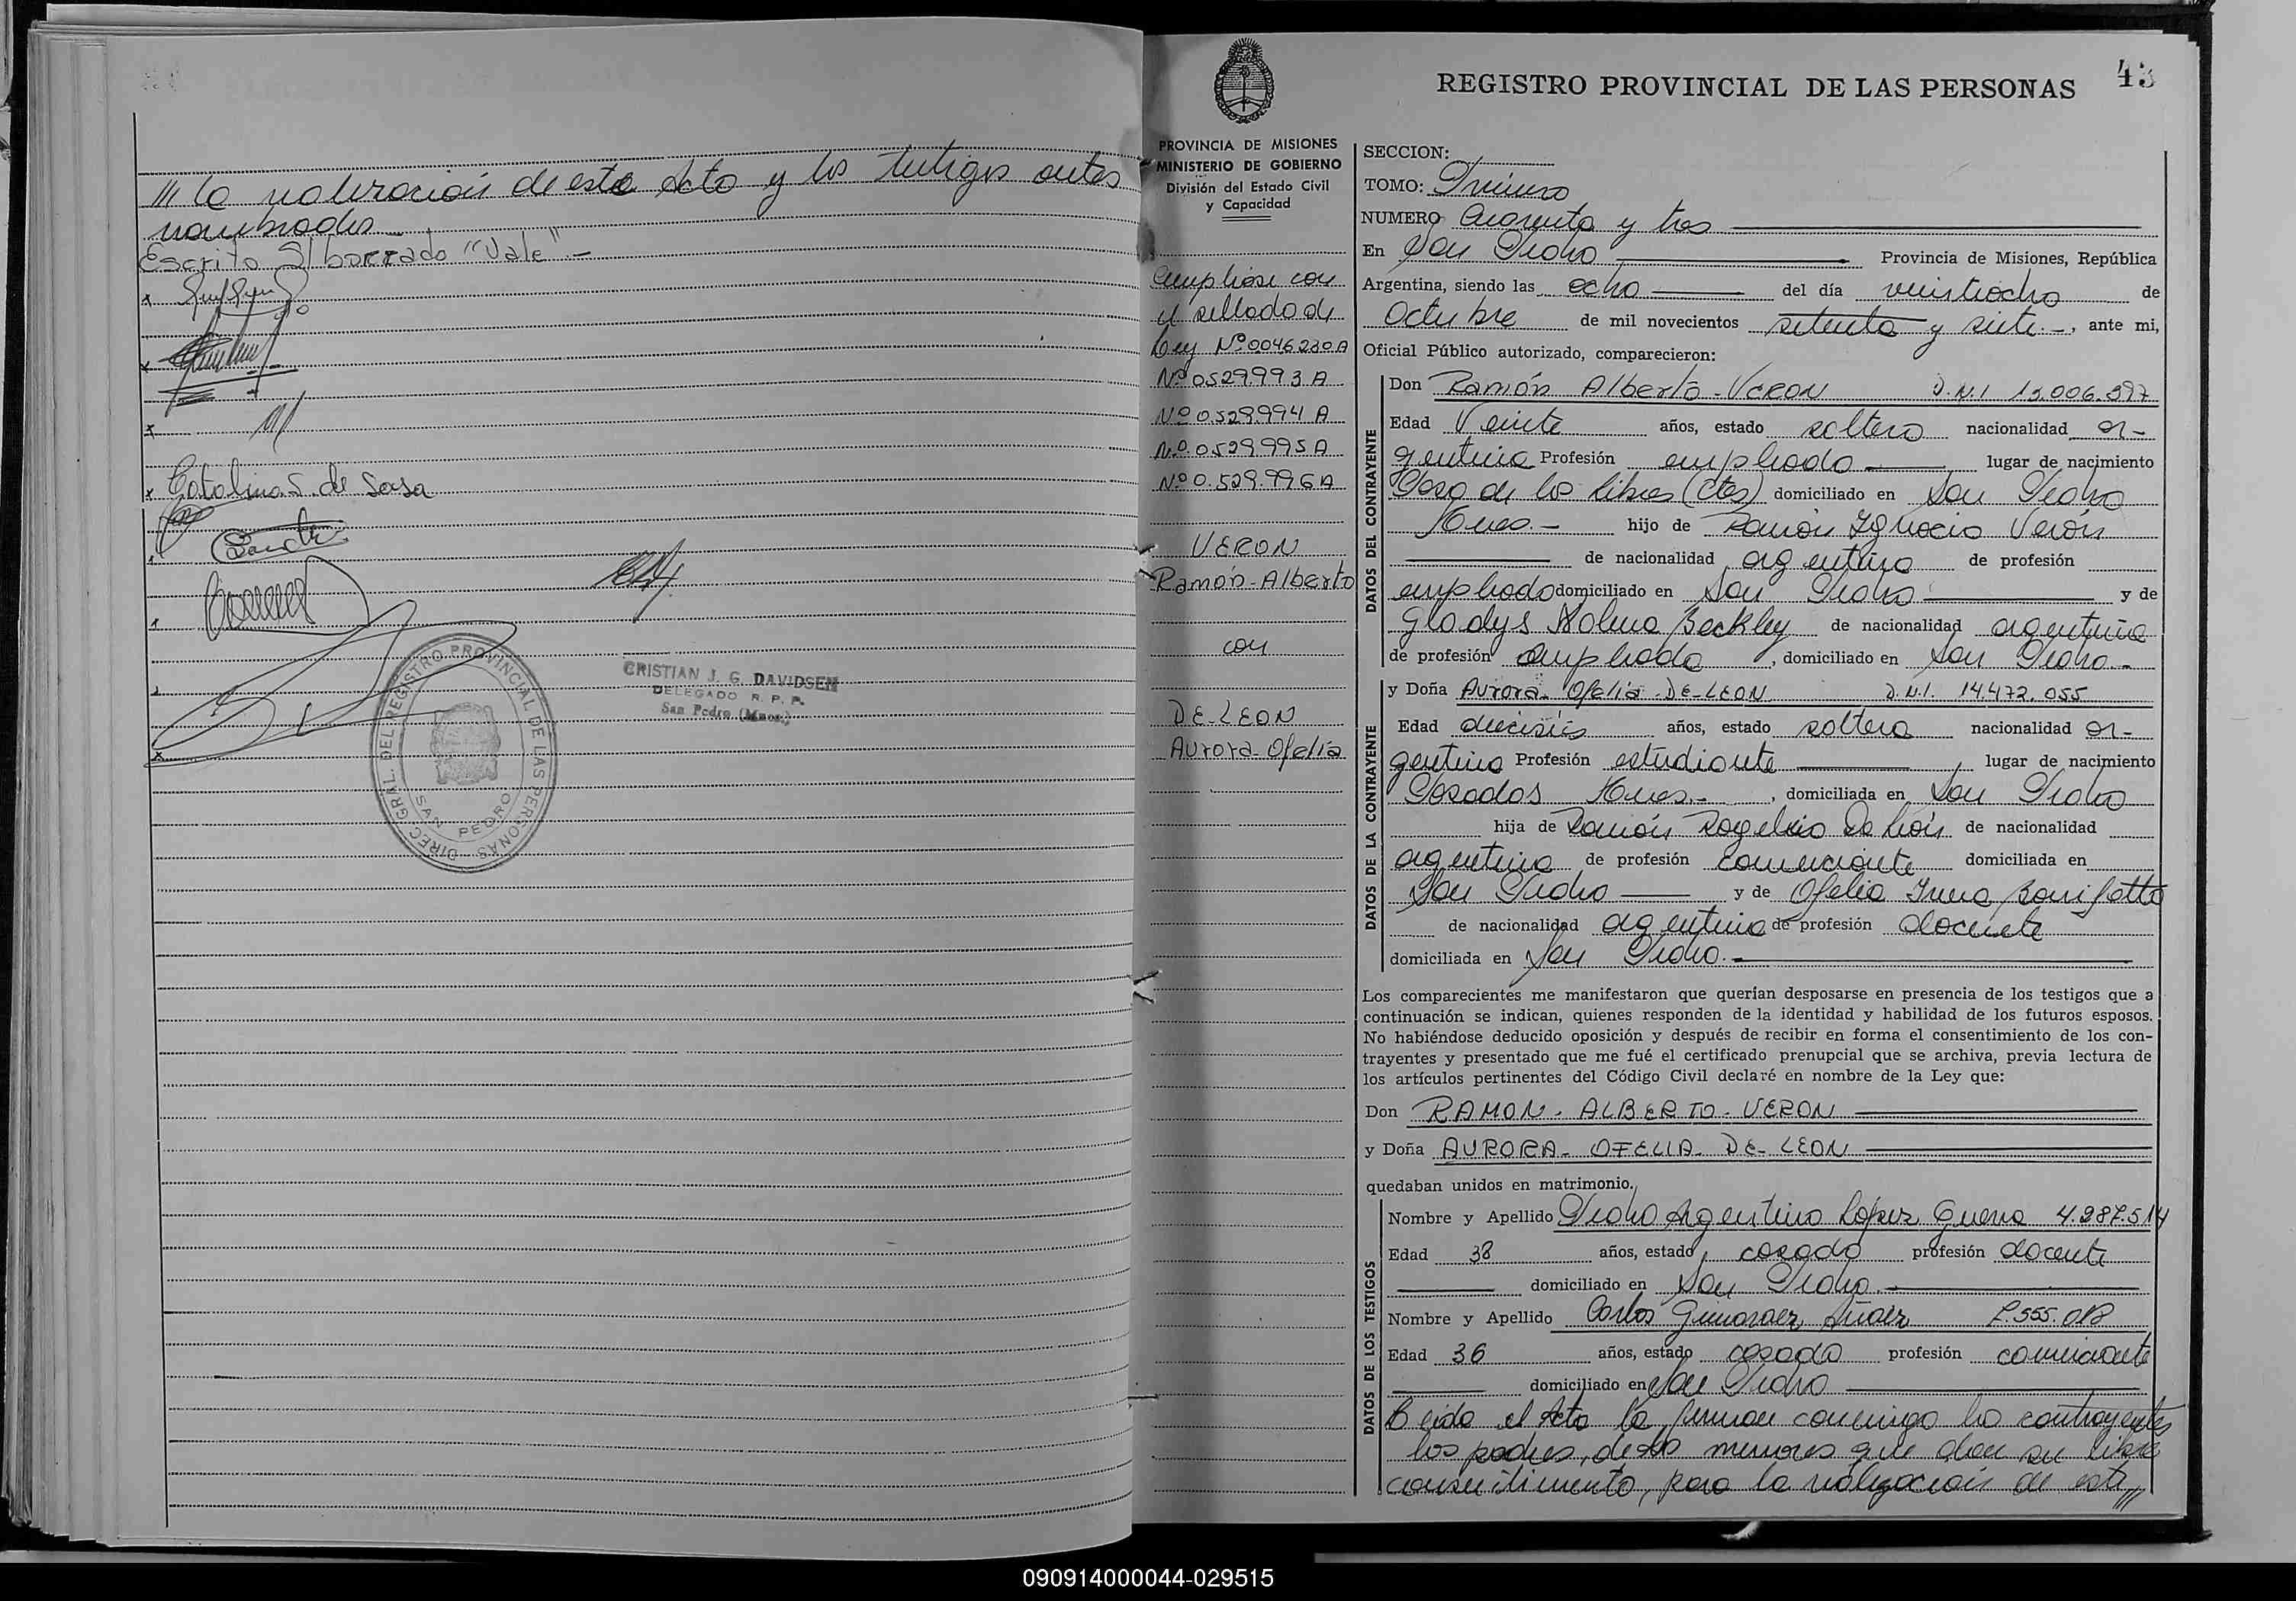 /// la realización de este Acto y los testigos antes
nombrados.-
Escrito S/ borrado "Vale".-
Catalina S. de Sosa
CRISTIAN J. G. DAVIDSEN
DELEGADO R. P. P.
San Pedro (Mnes.)
DIREC. GRAL. DEL REGISTRO PROVINCIAL DE LAS PERSONAS
SAN PEDRO
43
REGISTRO PROVINCIAL DE LAS PERSONAS
PROVINCIA DE MISIONES
MINISTERIO DE GOBIERNO
División del Estado Civil
y Capacidad
Cumpliose con
el sellado de
Ley Nº 0046230A
Nº 0529993 A
Nº 0.529.994 A
Nº 0.529.995 A
Nº 0.529.996 A
VERON
Ramón-Alberto
con
DE-LEON
Aurora-Ofelia
SECCION:
TOMO: Primero
NUMERO Cuarenta y tres
En San Pedro Provincia de Misiones, República
Argentina, siendo las ocho del día veintiocho de
Octubre de mil novecientos setenta y siete.-, ante mi,
Oficial Público autorizado, comparecieron:
DATOS DEL CONTRAYENTE
Don Ramón Alberto-VERON D.N.I 13.006.397
Edad Veinte años, estado soltero nacionalidad ar-
gentina Profesión empleado lugar de nacimiento
Paso de los Libres (Ctes) domiciliado en San Pedro
Mnes.- hijo de Ramón Ignacio Verón
de nacionalidad argentina de profesión
empleado domiciliado en San Pedro y de
Gladys Beckley de nacionalidad argentina
de profesión empleada, domiciliado en San Pedro.-
DATOS DE LA CONTRAYENTE
y Doña Aurora-Ofelia-DE-LEON D.N.I. 14.472.055
Edad dieciséis años, estado soltera nacionalidad ar-
gentina Profesión estudiante lugar de nacimiento
Posadas Mnes.-, domiciliada en San Pedro
hija de Ramón Rogelio De León de nacionalidad
argentina de profesión comerciante domiciliada en
San Pedro y de Ofelia Irma Bonifatto
de nacionalidad argentina de profesión docente
domiciliada en San Pedro.-
Los comparecientes me manifestaron que querían desposarse en presencia de los testigos que a
continuación se indican, quienes responden de la identidad y habilidad de los futuros esposos.
No habiéndose deducido oposición y después de recibir en forma el consentimiento de los con-
trayentes y presentado que me fué el certificado prenupcial que se archiva, previa lectura de
los artículos pertinentes del Código Civil declaré en nombre de la Ley que:
Don RAMON-ALBERTO-VERON
y Doña AURORA-OFELIA-DE-LEON
quedaban unidos en matrimonio.
DATOS DE LOS TESTIGOS
Nombre y Apellido Pedro Argentino López Guerra 4.987.514
Edad 38 años, estado, casado profesión docente
domiciliado en San Pedro.-
Nombre y Apellido Carlos
Edad 36 años, estado casado profesión comerciante
domiciliado en San Pedro
Leída el Acta la firman conmigo los contrayentes
los padres, de los menores que dan su libre
consentimiento, para la realización de este ///
090914000044-029515